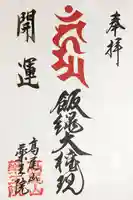 奉拝
開運
飯縄大権現
高尾山
薬王院